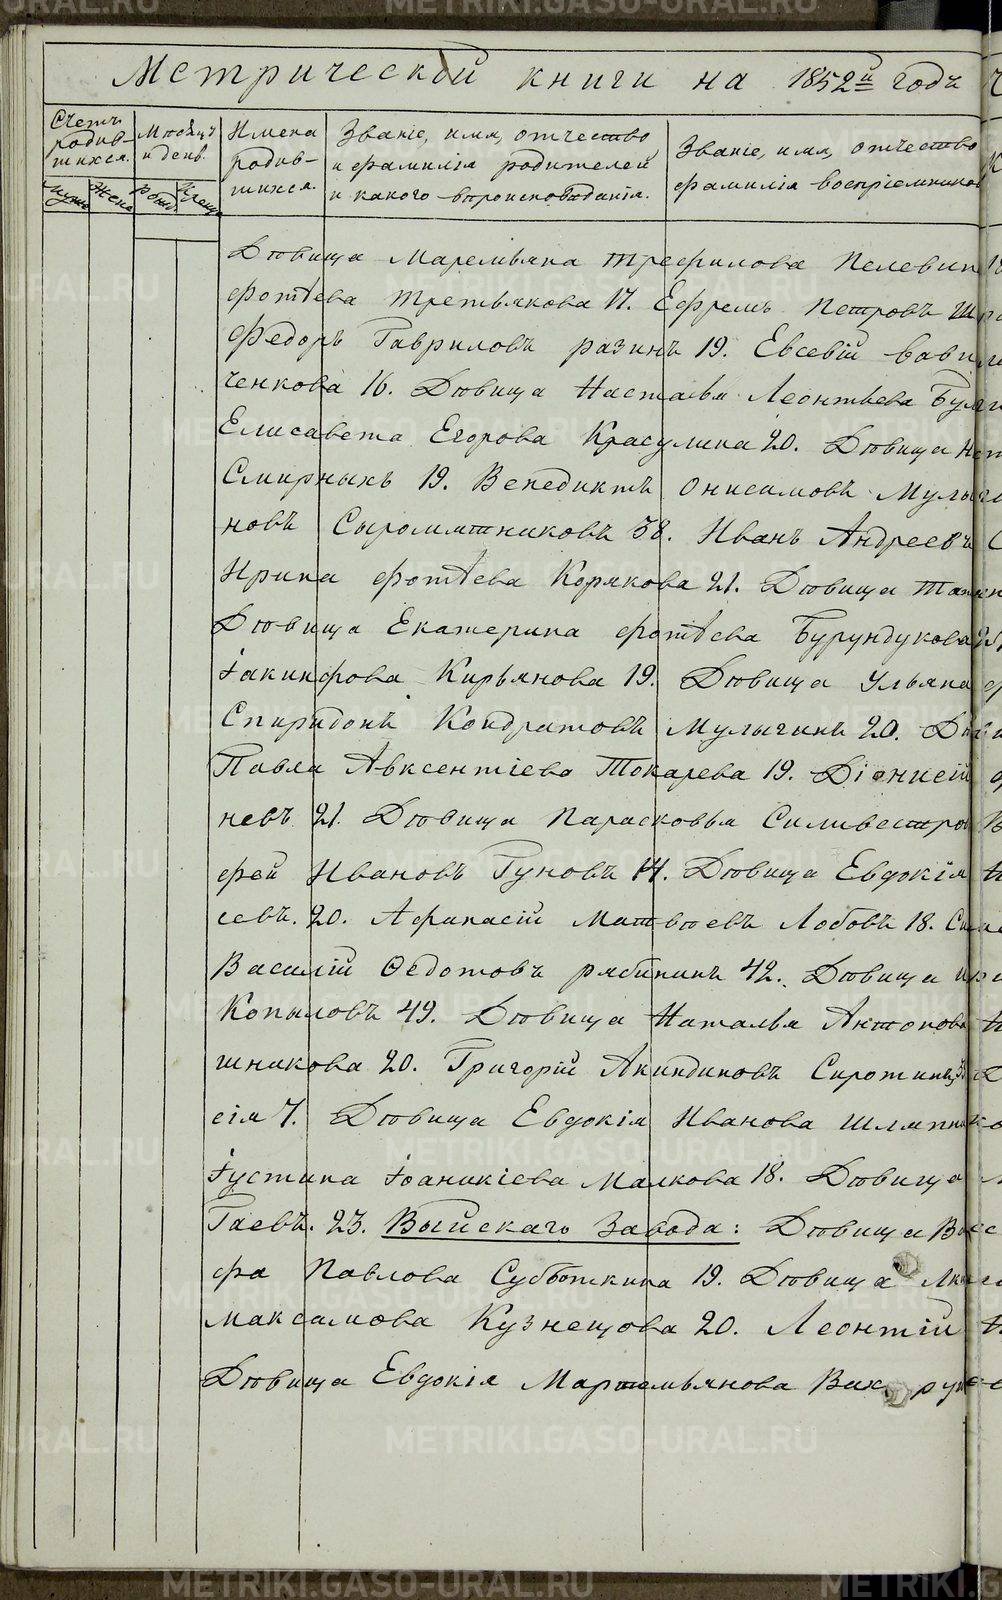 Метрической книги на 1852й годъ
Счетъ родив-
шихся.
Мѣсяцъ
и день.
Имена
родив-
шихся.
Званіе, имя, отчество,
и фамилія родителей,
и какого вѣроисповѣданія.
Званіе, имя, отчество
фамилія воспріемников
Муж.
Жен.
Рожд.
Крещ.
Дѣвица Маремьяна Трефилова Пелевин
Фотѣева Третьякова 17. Ефремъ Петровъ
Федоръ Гавриловъ разинъ 19. Евсевій
ченкова 16. Дѣвица Настасья Леонтьева
Елисавета Егорова Красулина 20. Дѣвица
Смирныхъ 19. Венедиктъ Онисимовъ
новъ Сыромятниковъ 38. Иванъ Андреевъ
Ирина Фотѣева Корякова 21. Дѣвица
Дѣвица Екатерина Фотѣева Бурундукова
Іакинфова Кирьянова 19. Дѣвица Ульяна
Спиридонъ Кондратовъ Мулычинъ 20.
Павла Авксентіева Токарева 19. Діонисій
невъ 21. Дѣвица Парасковья Силивестров
фей Ивановъ Гуновъ 14. Дѣвица Евдокія
севъ. 20. Афанасій Матвѣевъ Лобовъ 18.
Василій Ѳедотовъ рябининъ 42. Дѣвица
Копыловъ 49. Дѣвица Наталья Антонова
шникова 20. Григорій Акиндиновъ Сиротинъ
сія 7. Дѣвица Евдокія Иванова
Іустина Іоаникіева Малкова 18. Дѣвица
Гаевъ. 23. Выйскаго Завода: Дѣвица
фа Павлова Субботкина 19. Дѣвица
Максимова Кузнецова 20. Леонтій
Дѣвица Евдокія Мартемьянова
METRIKI.GASO-URAL.RU